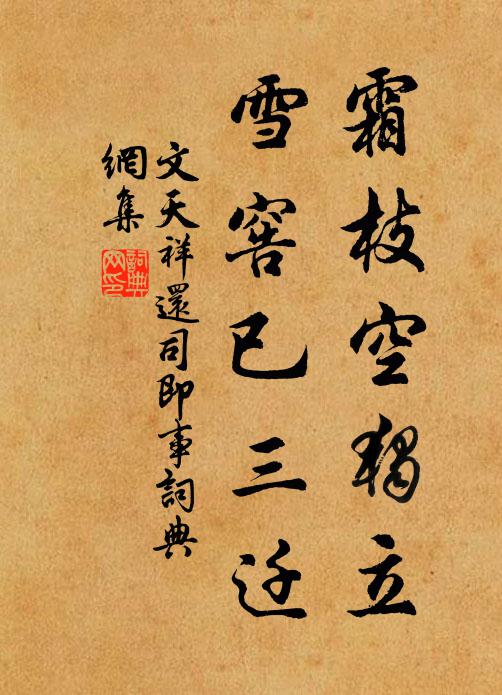 霜枝空獨立
雪窖已三迁
文天祥還司即事詞典
網集
詞典网印